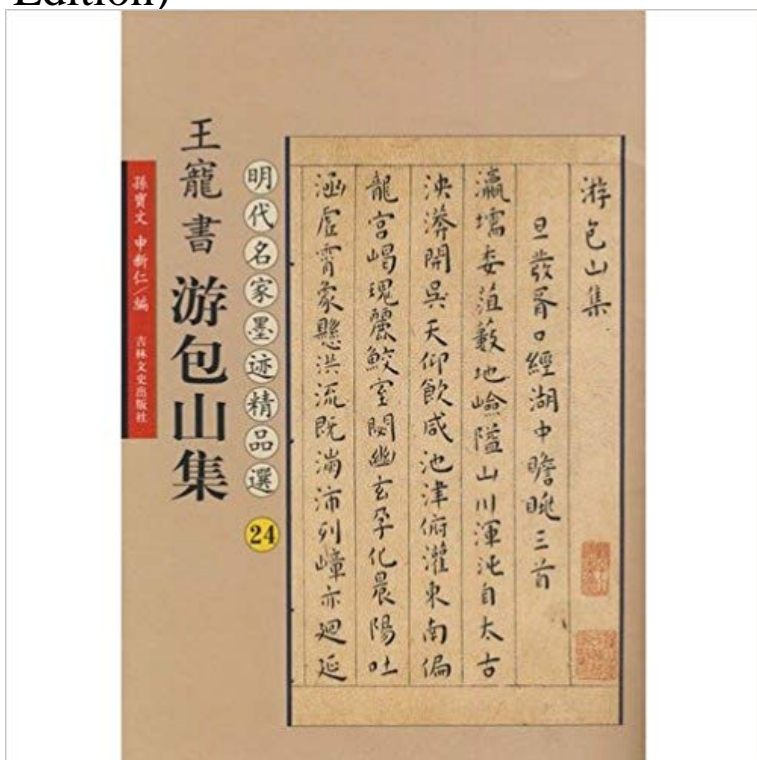 Edition)
游包山集
旦發胥口經湖中瞻眺三首
瀛壖委菹藪地嶮隘山川渾沌自太古
泱漭開吳天仰飲咸池津俯灌東南偏
龍宮嵑瑰麗鮫室閟幽玄孕化晨陽吐
涵虛霄象懸洪流既滂沛列嶂亦廻延
明代名家墨迹精品選 24
王寵書 游包山集
孫寶文 申新仁/編 吉林文史出版社